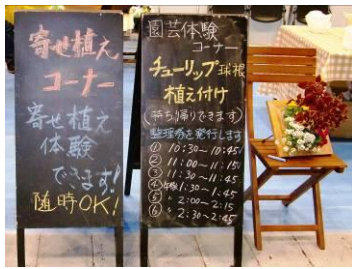 寄せ植え
コーナー
寄せ植え
体験
できます!
随時OK!
園芸体験
コーナー
チューリップ球根
植え付け
(持ち帰りできます)
整理券を発行します
① 10:30~10:45
② 11:00~11:15
③ 11:30~11:45
④ 午後1:30~1:45
⑤ 〃 2:00~2:15
⑥ 〃 2:30~2:45